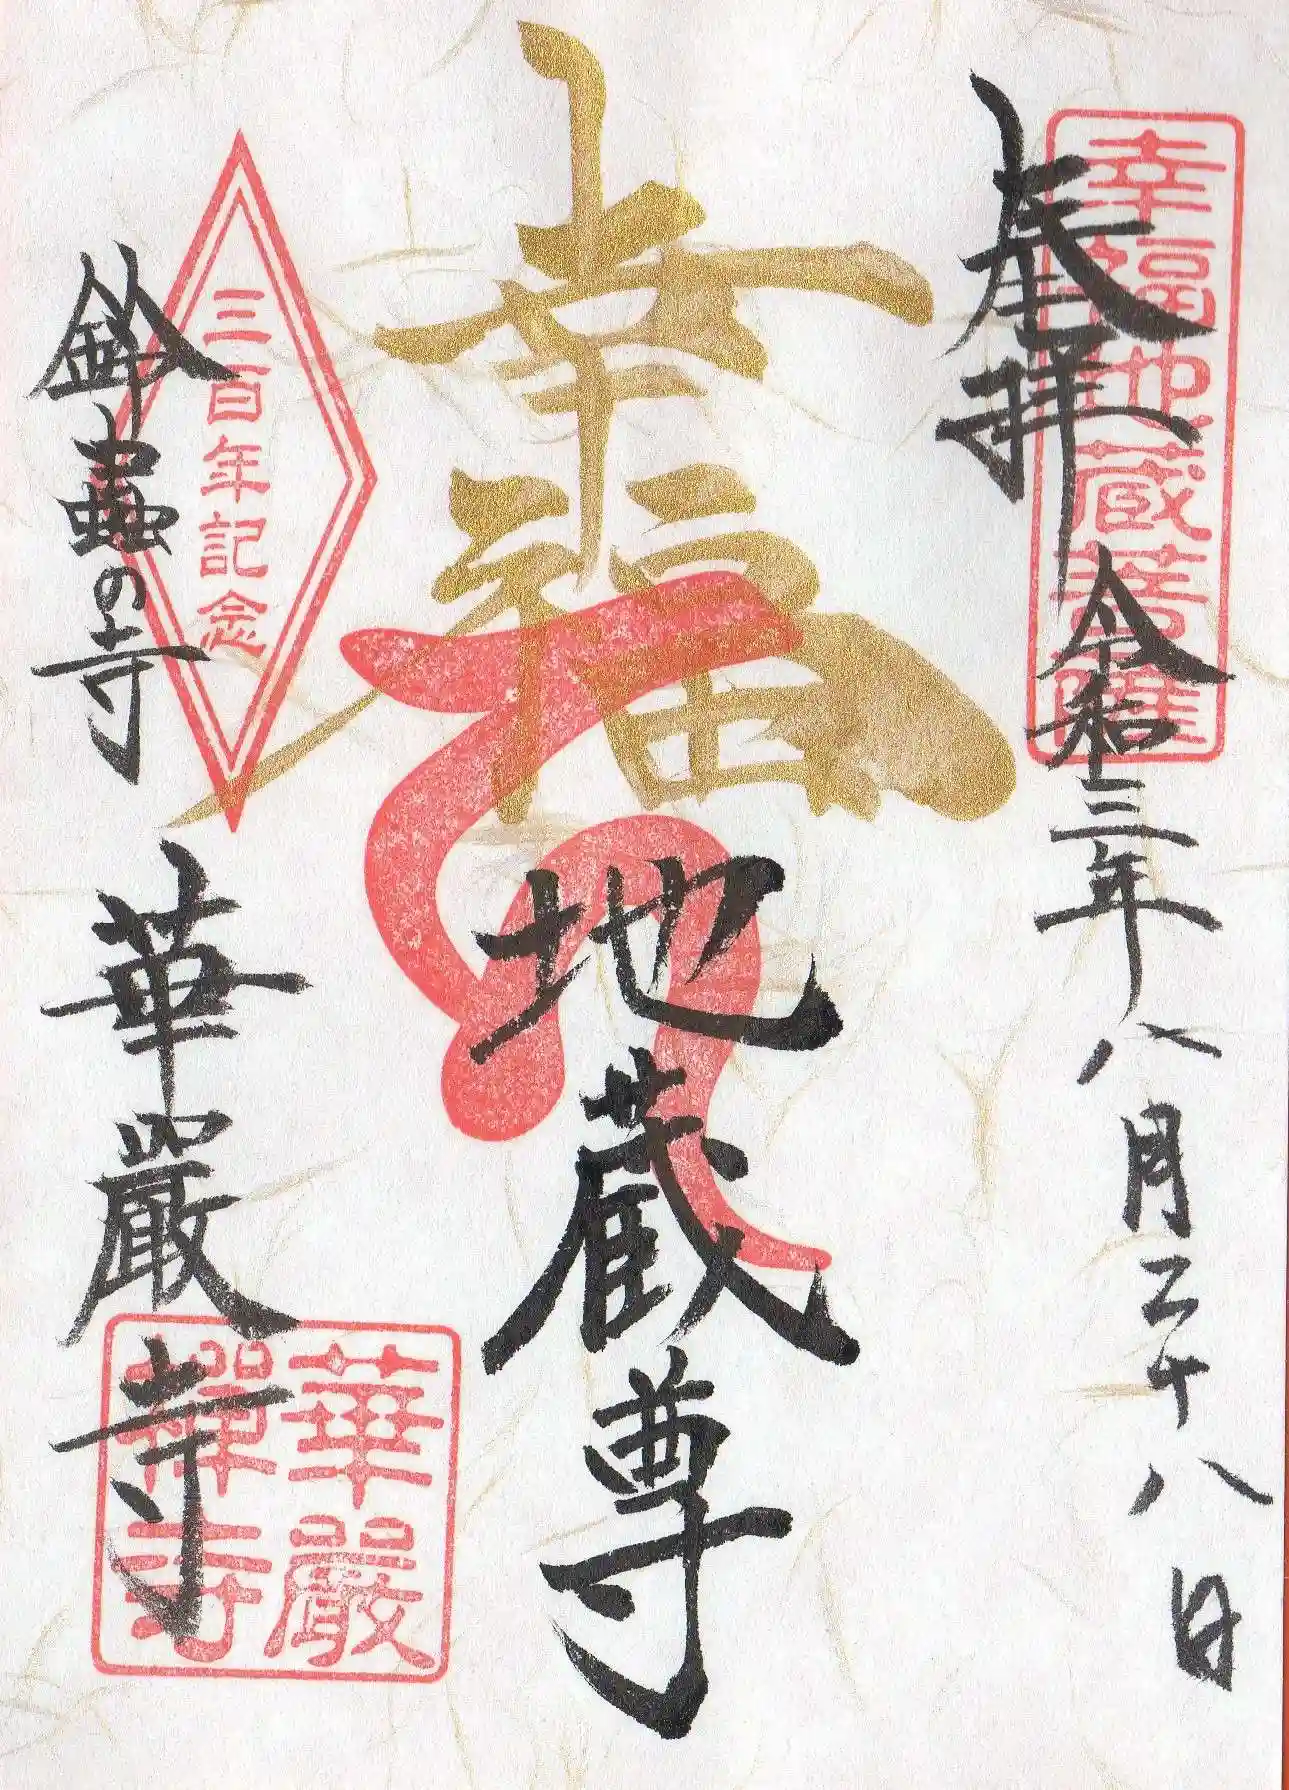 奉拝
令和三年八月二十八日
幸福地蔵菩薩
幸福
地蔵尊
三百年記念
鈴蟲の寺
華嚴寺
華嚴
禅寺